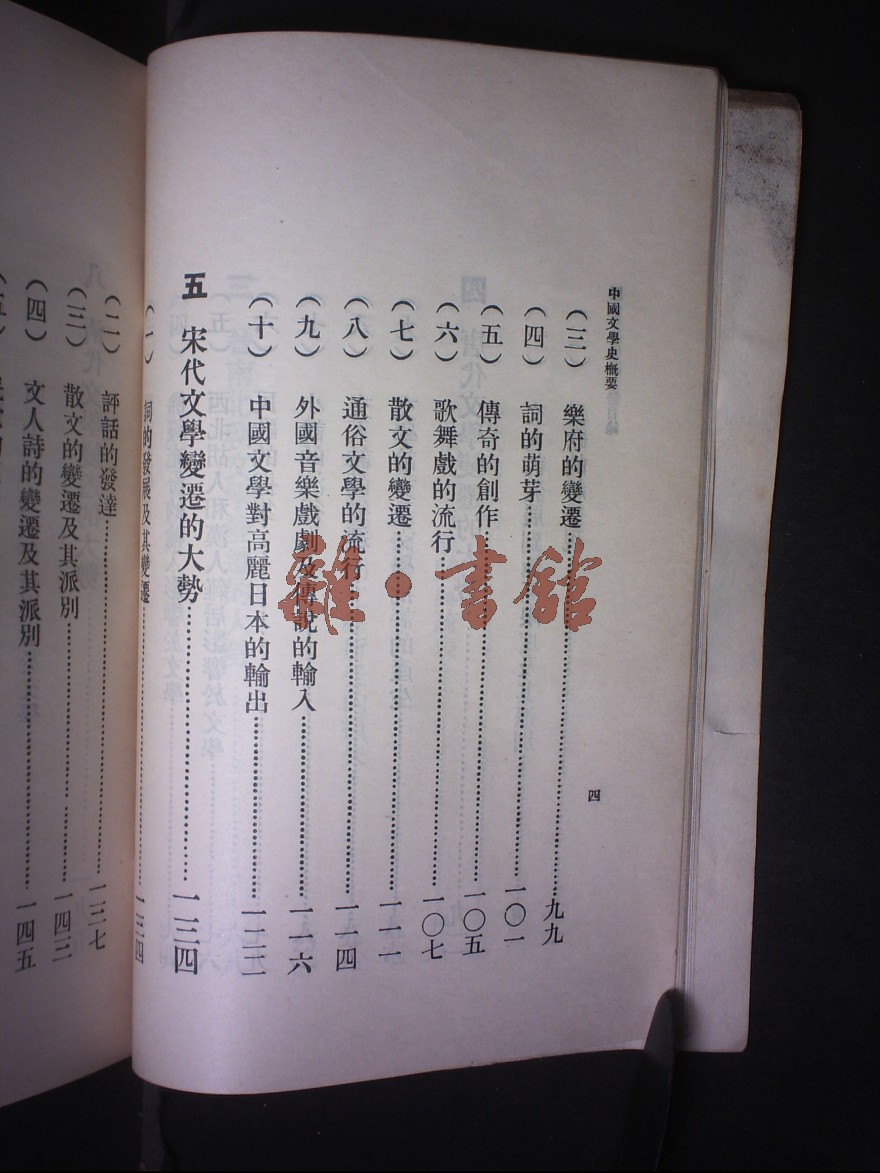 中國文學史概要
（三） 樂府的變遷……九九
（四） 詞的萌芽……一〇一
（五） 傳奇的創作……一〇五
（六） 歌舞戲的流行……一〇七
（七） 散文的變遷……一一一
（八） 通俗文學的流行……一一四
（九） 外國音樂戲劇及傳說的輸入……一一六
（十） 中國文學對高麗日本的輸出……
五 宋代文學變遷的大勢……一三四
（一） 詞的發展及其變遷……一三四
（二） 評話的發達……一三七
（三） 散文的變遷及其派別……
（四） 文人詩的變遷及其派別……一四五
（五）
四
雜·書館